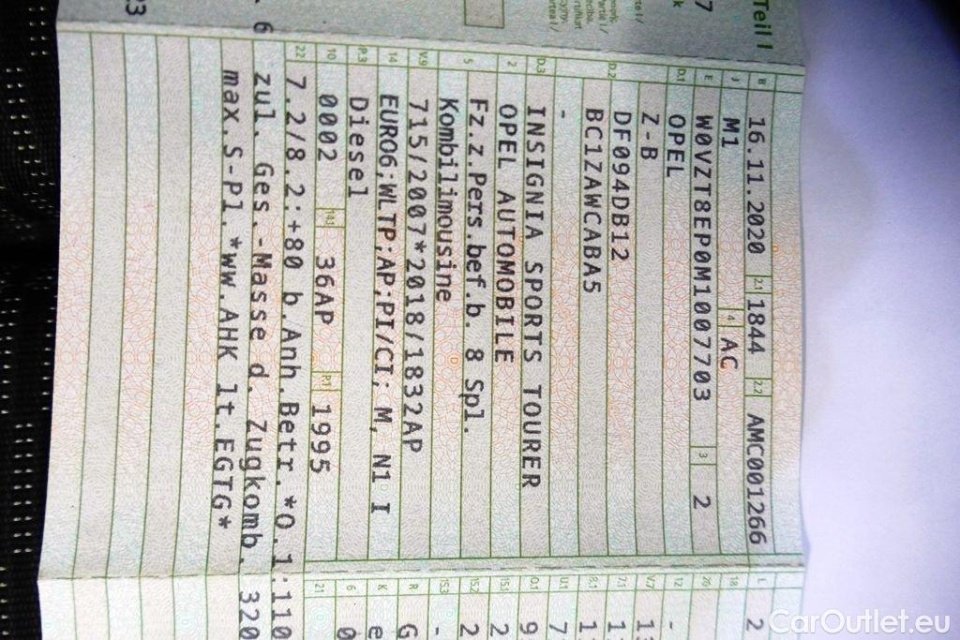 Teil I
B 16.11.2020 2.1 1844 2.2 AMC001266
J M1 4 AC
E W0VZT8EP0M1007703 3 2
D.1 OPEL
Z-B
D.2 DF094DB12
BC1ZAWCABA5
-
D.3 INSIGNIA SPORTS TOURER
2 OPEL AUTOMOBILE
5 Fz.z.Pers.bef.b. 8 Spl.
Kombilimousine
V.9 715/2007*2018/1832AP
14 EURO6;WLTP;AP;PI/CI; M, N1 I
P.3 Diesel
10 0002 14.1 36AP P.1 1995
22 7.2/8.2:+80 b.Anh.Betr.*O.1:110
zul. Ges.-Masse d. Zugkomb. 320
max.S-Pl.*ww.AHK lt.EGTG*
L 2
18
20
12 -
V.7 13
7.1
8.1
U.1 7
O.1 9
S.1 2
S.2 2
S.3 -
R G
K e
6 0
21
CarOutlet.eu